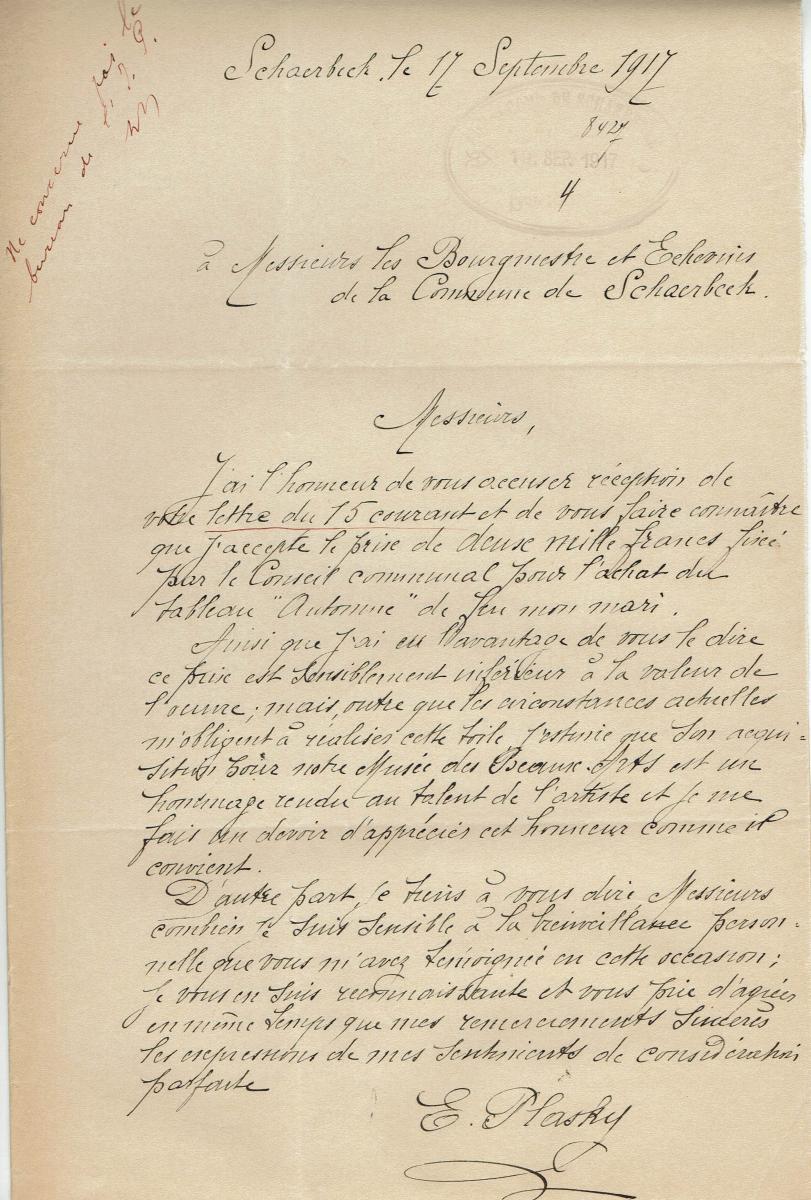 Ne concerne pas le
bureau de
Schaerbeek, le 17 Septembre 1917
8427
4
à Messieurs les Bourgmestre et Echevins
de la Commune de Schaerbeek.
Messieurs,
J'ai l'honneur de vous accuser réception de
votre lettre du 15 courant et de vous faire connaître
que j'accepte le prix de deux mille francs fixé
par le Conseil communal pour l'achat du
tableau "Automne" de feu mon mari.
Ainsi que j'ai eu l'avantage de vous le dire
ce prix est sensiblement inférieur à la valeur de
l'œuvre; mais, outre que les circonstances actuelles
m'obligent à réaliser cette toile j'estime que son acqui=
sition pour notre Musée des Beaux-Arts est un
hommage rendu au talent de l'artiste et je me
fais un devoir d'apprécier cet honneur comme il
convient.
D'autre part, je tiens à vous dire Messieurs
combien je suis sensible à la bienveillance person=
nelle que vous m'avez témoignée en cette occasion;
je vous en suis reconnaissante et vous prie d'agréer
en même temps que mes remerciements sincères
les expressions de mes sentiments de considération
parfaite
E. Plasky